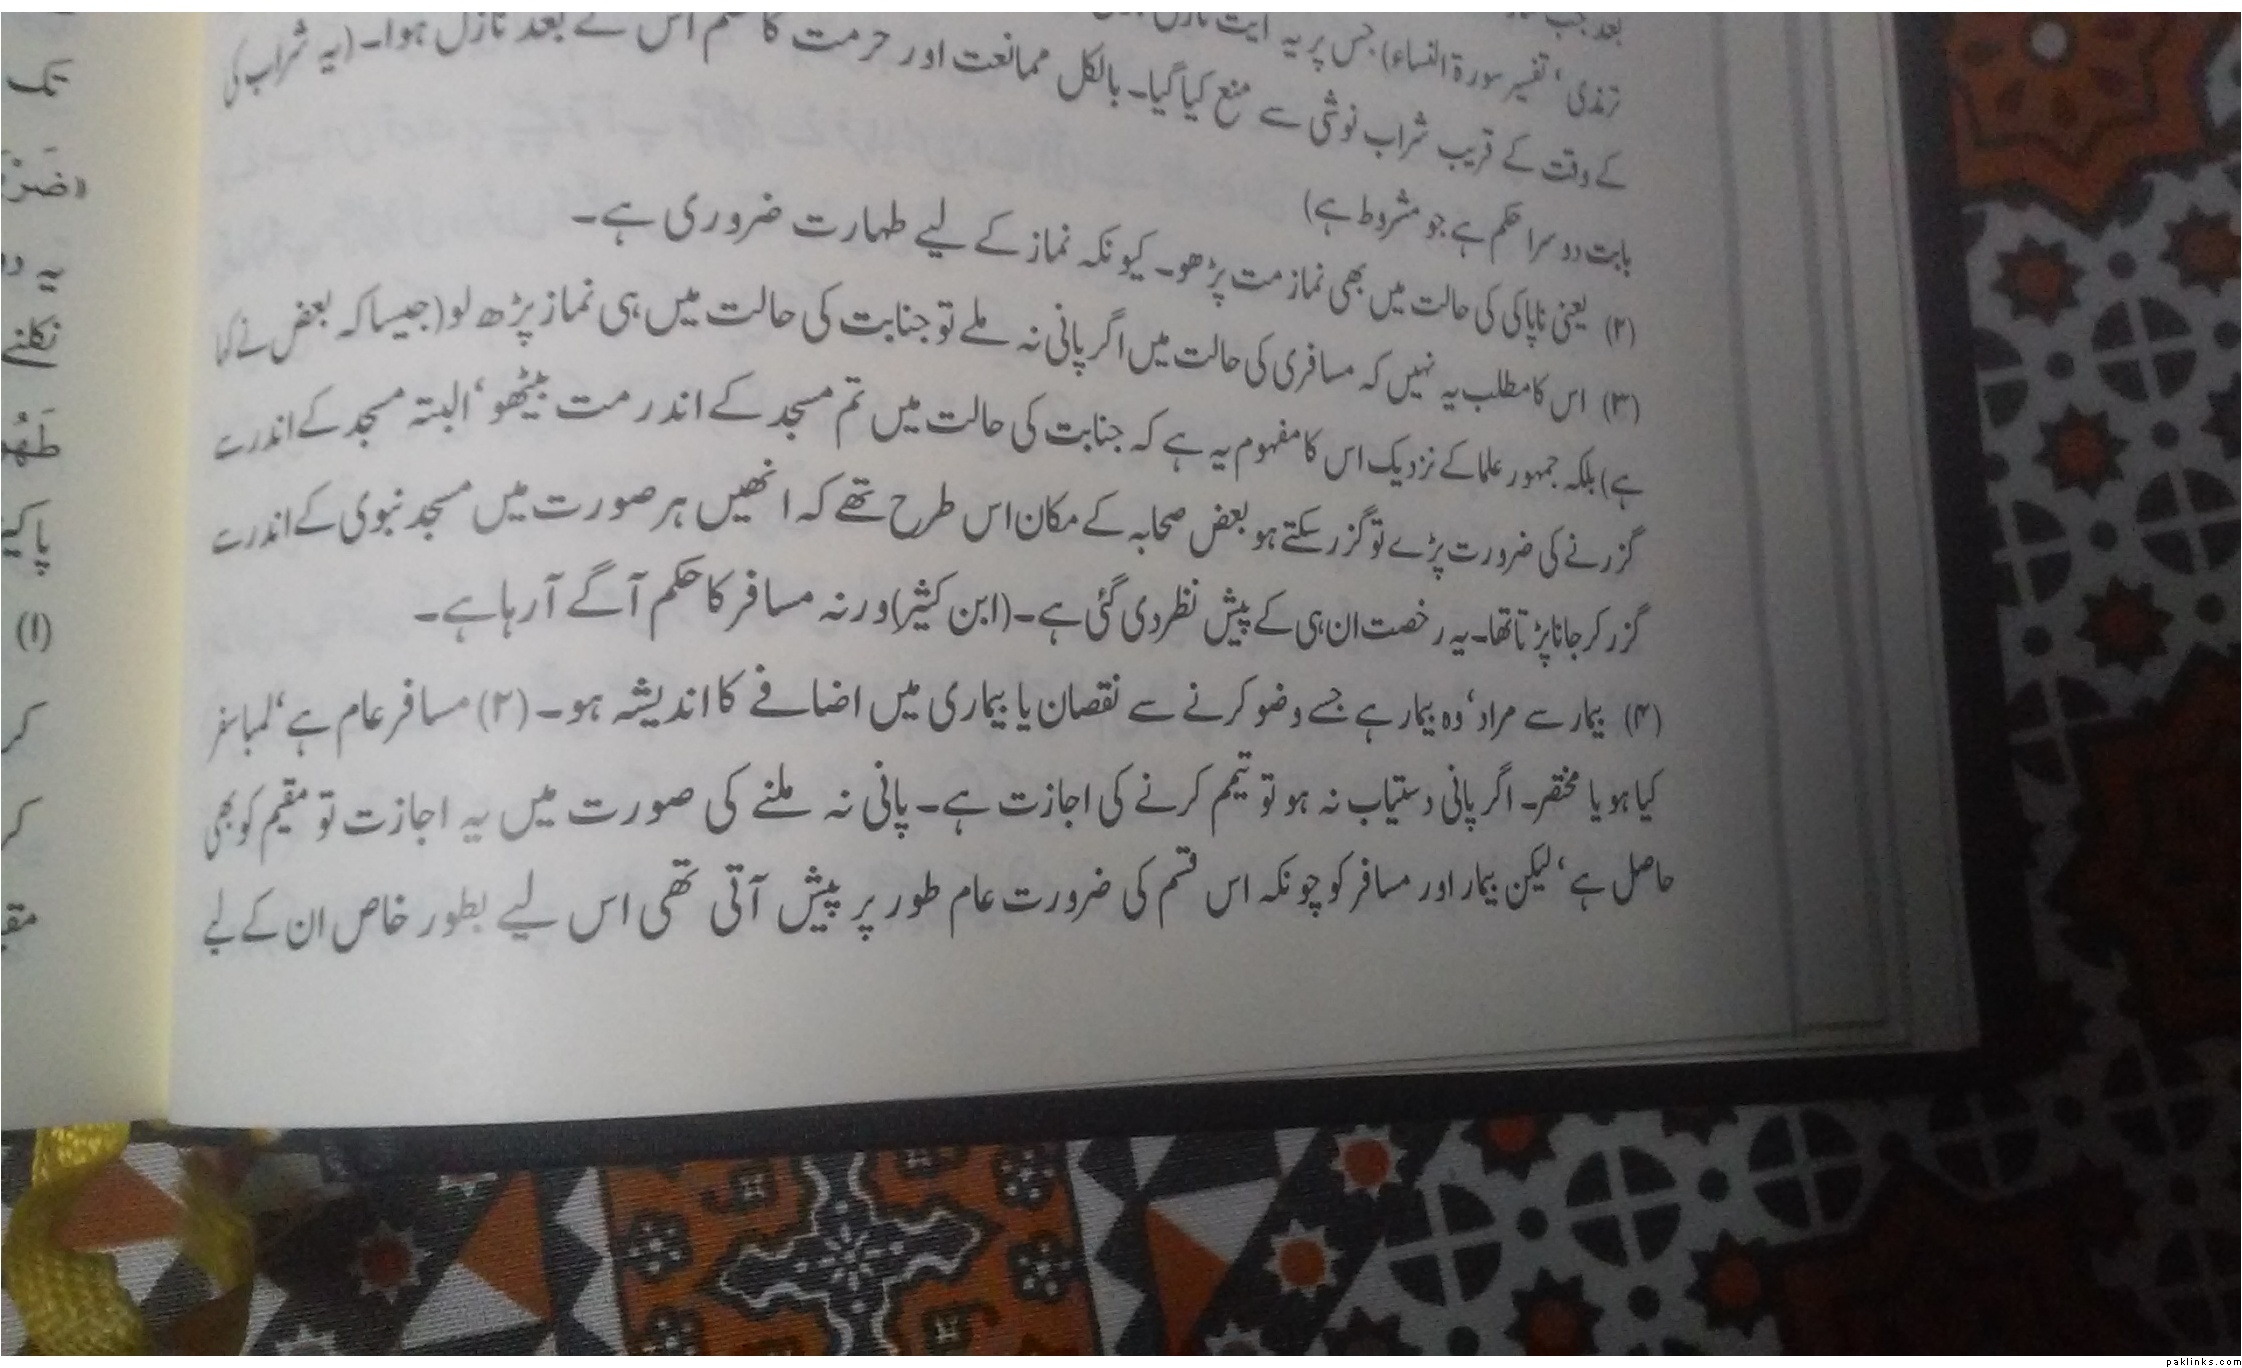 بعد جب
ترمذی‘ تفسیر سورۃ النساء) جس پر یہ آیت نازل
کے وقت کے قریب شراب نوشی سے منع کیا گیا۔ بالکل ممانعت اور حرمت کا حکم اس کے بعد نازل ہوا۔ (یہ شراب کی
بابت دوسرا حکم ہے جو مشروط ہے)
(۲) یعنی ناپاکی کی حالت میں بھی نماز مت پڑھو۔ کیونکہ نماز کے لیے طہارت ضروری ہے۔
(۳) اس کا مطلب یہ نہیں کہ مسافری کی حالت میں اگر پانی نہ ملے تو جنابت کی حالت میں ہی نماز پڑھ لو (جیسا کہ بعض نے کہا
ہے) بلکہ جمہور علما کے نزدیک اس کا مفہوم یہ ہے کہ جنابت کی حالت میں تم مسجد کے اندر مت بیٹھو‘ البتہ مسجد کے اندر سے
گزرنے کی ضرورت پڑے تو گزر سکتے ہو بعض صحابہ کے مکان اس طرح تھے کہ انھیں ہر صورت میں مسجد نبوی کے اندر سے
گزر کر جانا پڑتا تھا۔ یہ رخصت ان ہی کے پیش نظر دی گئی ہے۔ (ابن کثیر) ورنہ مسافر کا حکم آگے آرہا ہے۔
(۴) بیمار سے مراد‘ وہ بیمار ہے جسے وضو کرنے سے نقصان یا بیماری میں اضافے کا اندیشہ ہو۔ (۲) مسافر عام ہے‘ لمبا سفر
کیا ہو یا مختصر۔ اگر پانی دستیاب نہ ہو تو تیمم کرنے کی اجازت ہے۔ پانی نہ ملنے کی صورت میں یہ اجازت تو مقیم کو بھی
حاصل ہے‘ لیکن بیمار اور مسافر کو چونکہ اس قسم کی ضرورت عام طور پر پیش آتی تھی اس لیے بطور خاص ان کے لیے
تک
یہ
نکلنے
(۱)
کر
کر
paklinks.com